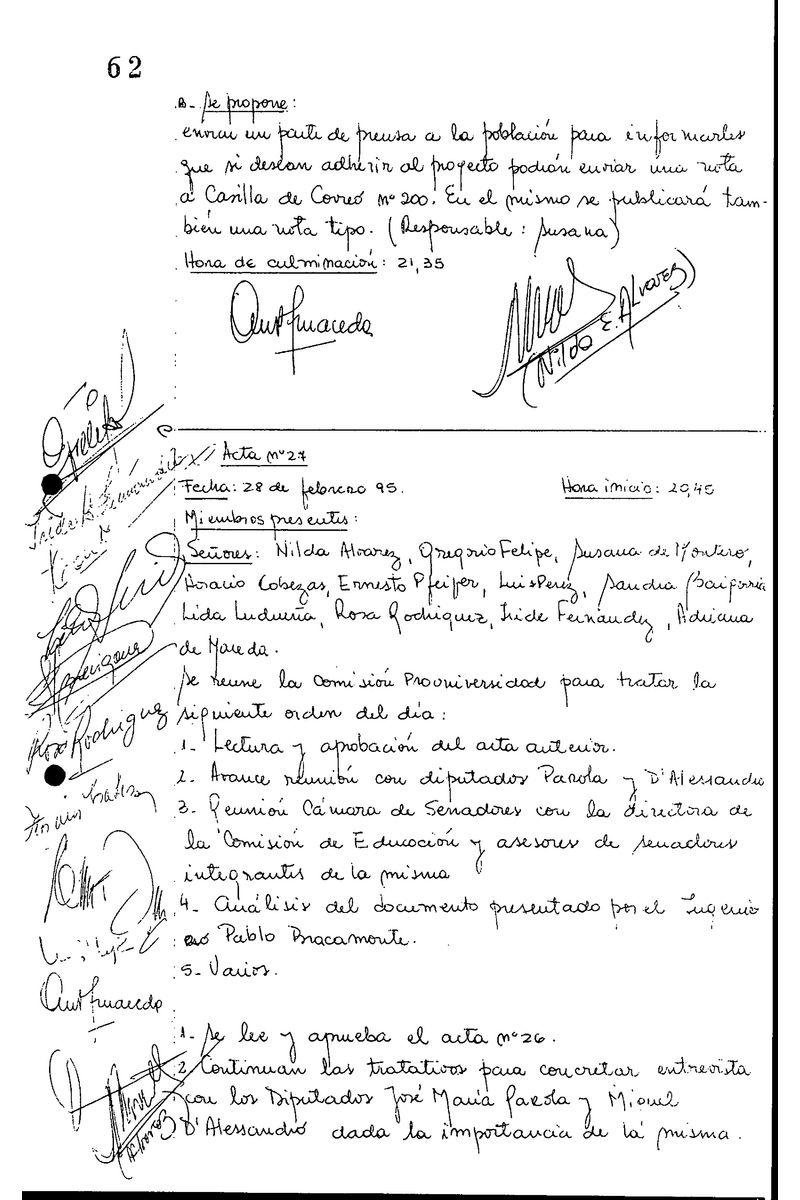 62
B- Se propone:
enviar un parte de prensa a la población para informarles
que si desean adherir al proyecto podrán enviar una nota
a Casilla de Correo nº 200. En el mismo se publicará tam-
bién una nota tipo. (Responsable: Susana)
Hora de culminación: 21,35
(Nilda E. Alvarez)
Acta nº 27
Fecha: 28 de febrero 95. Hora inicio: 20,45
Miembros presentes:
Señores: Nilda Alvarez, Gregorio Felipe, Susana de Montero,
Horacio Cabezas, Ernesto Pfeifer, Luis Perez, Sandra Baigorria
Lida Ludueña, Rosa Rodriguez, Iride Fernandez, Adriana
de Maceda.
Se reune la Comisión Prouniversidad para tratar la
siguiente orden del día:
1- Lectura y aprobación del acta anterior.
2- Avance reunión con diputados Parola y D'Alessandro
3- Reunión Cámara de Senadores con la directora de
la Comisión de Educación y asesores de senadores
integrantes de la misma
4- Análisis del documento presentado por el Ingenie
ro Pablo Bracamonte.
5- Varios.
1- Se lee y aprueba el acta nº 26.
2 Continuan las tratativas para concretar entrevista
con los Diputados José María Parola y Miguel
D'Alessandro dada la importancia de la misma.
Iride A. Fernandez
Rosa Rodriguez
(Alvarez)